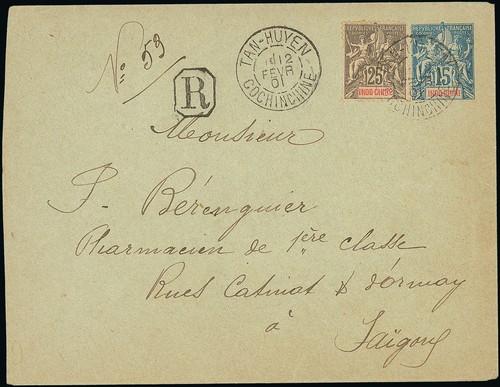 No 59
R
TAN-HUYEN
12
FEVR
01
COCHINCHINE
RÉPUBLIQUE FRANÇAISE
25
INDO-CHINE
RÉPUBLIQUE FRANÇAISE
15
INDO-CHINE
COCHINCHINE
Monsieur
J. Bérenguier
Pharmacien de 1ère classe
Rues Catinat & d'Ormay
à
Saïgon